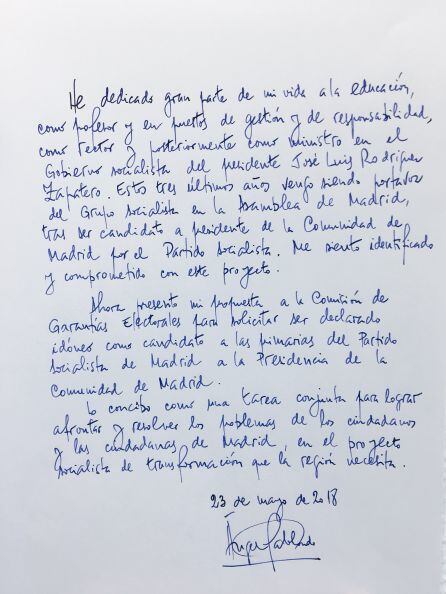 He dedicado gran parte de mi vida a la educación,
como profesor y en puestos de gestión y de responsabilidad,
como rector y posteriormente como ministro en el
Gobierno socialista del presidente José Luis Rodríguez
Zapatero. Estos tres últimos años vengo siendo portavoz
del Grupo Socialista en la Asamblea de Madrid,
tras ser candidato a presidente de la Comunidad de
Madrid por el Partido Socialista. Me siento identificado
y comprometido con este proyecto.
Ahora presento mi propuesta a la Comisión de
Garantías Electorales para solicitar ser declarado
idóneo como candidato a las primarias del Partido
Socialista de Madrid a la Presidencia de la
Comunidad de Madrid.
Lo concibo como una tarea conjunta para lograr
afrontar y resolver los problemas de los ciudadanos
y las ciudadanas de Madrid, en el proyecto
socialista de transformación que la región necesita.
23 de mayo de 2018
Ángel Gabilondo